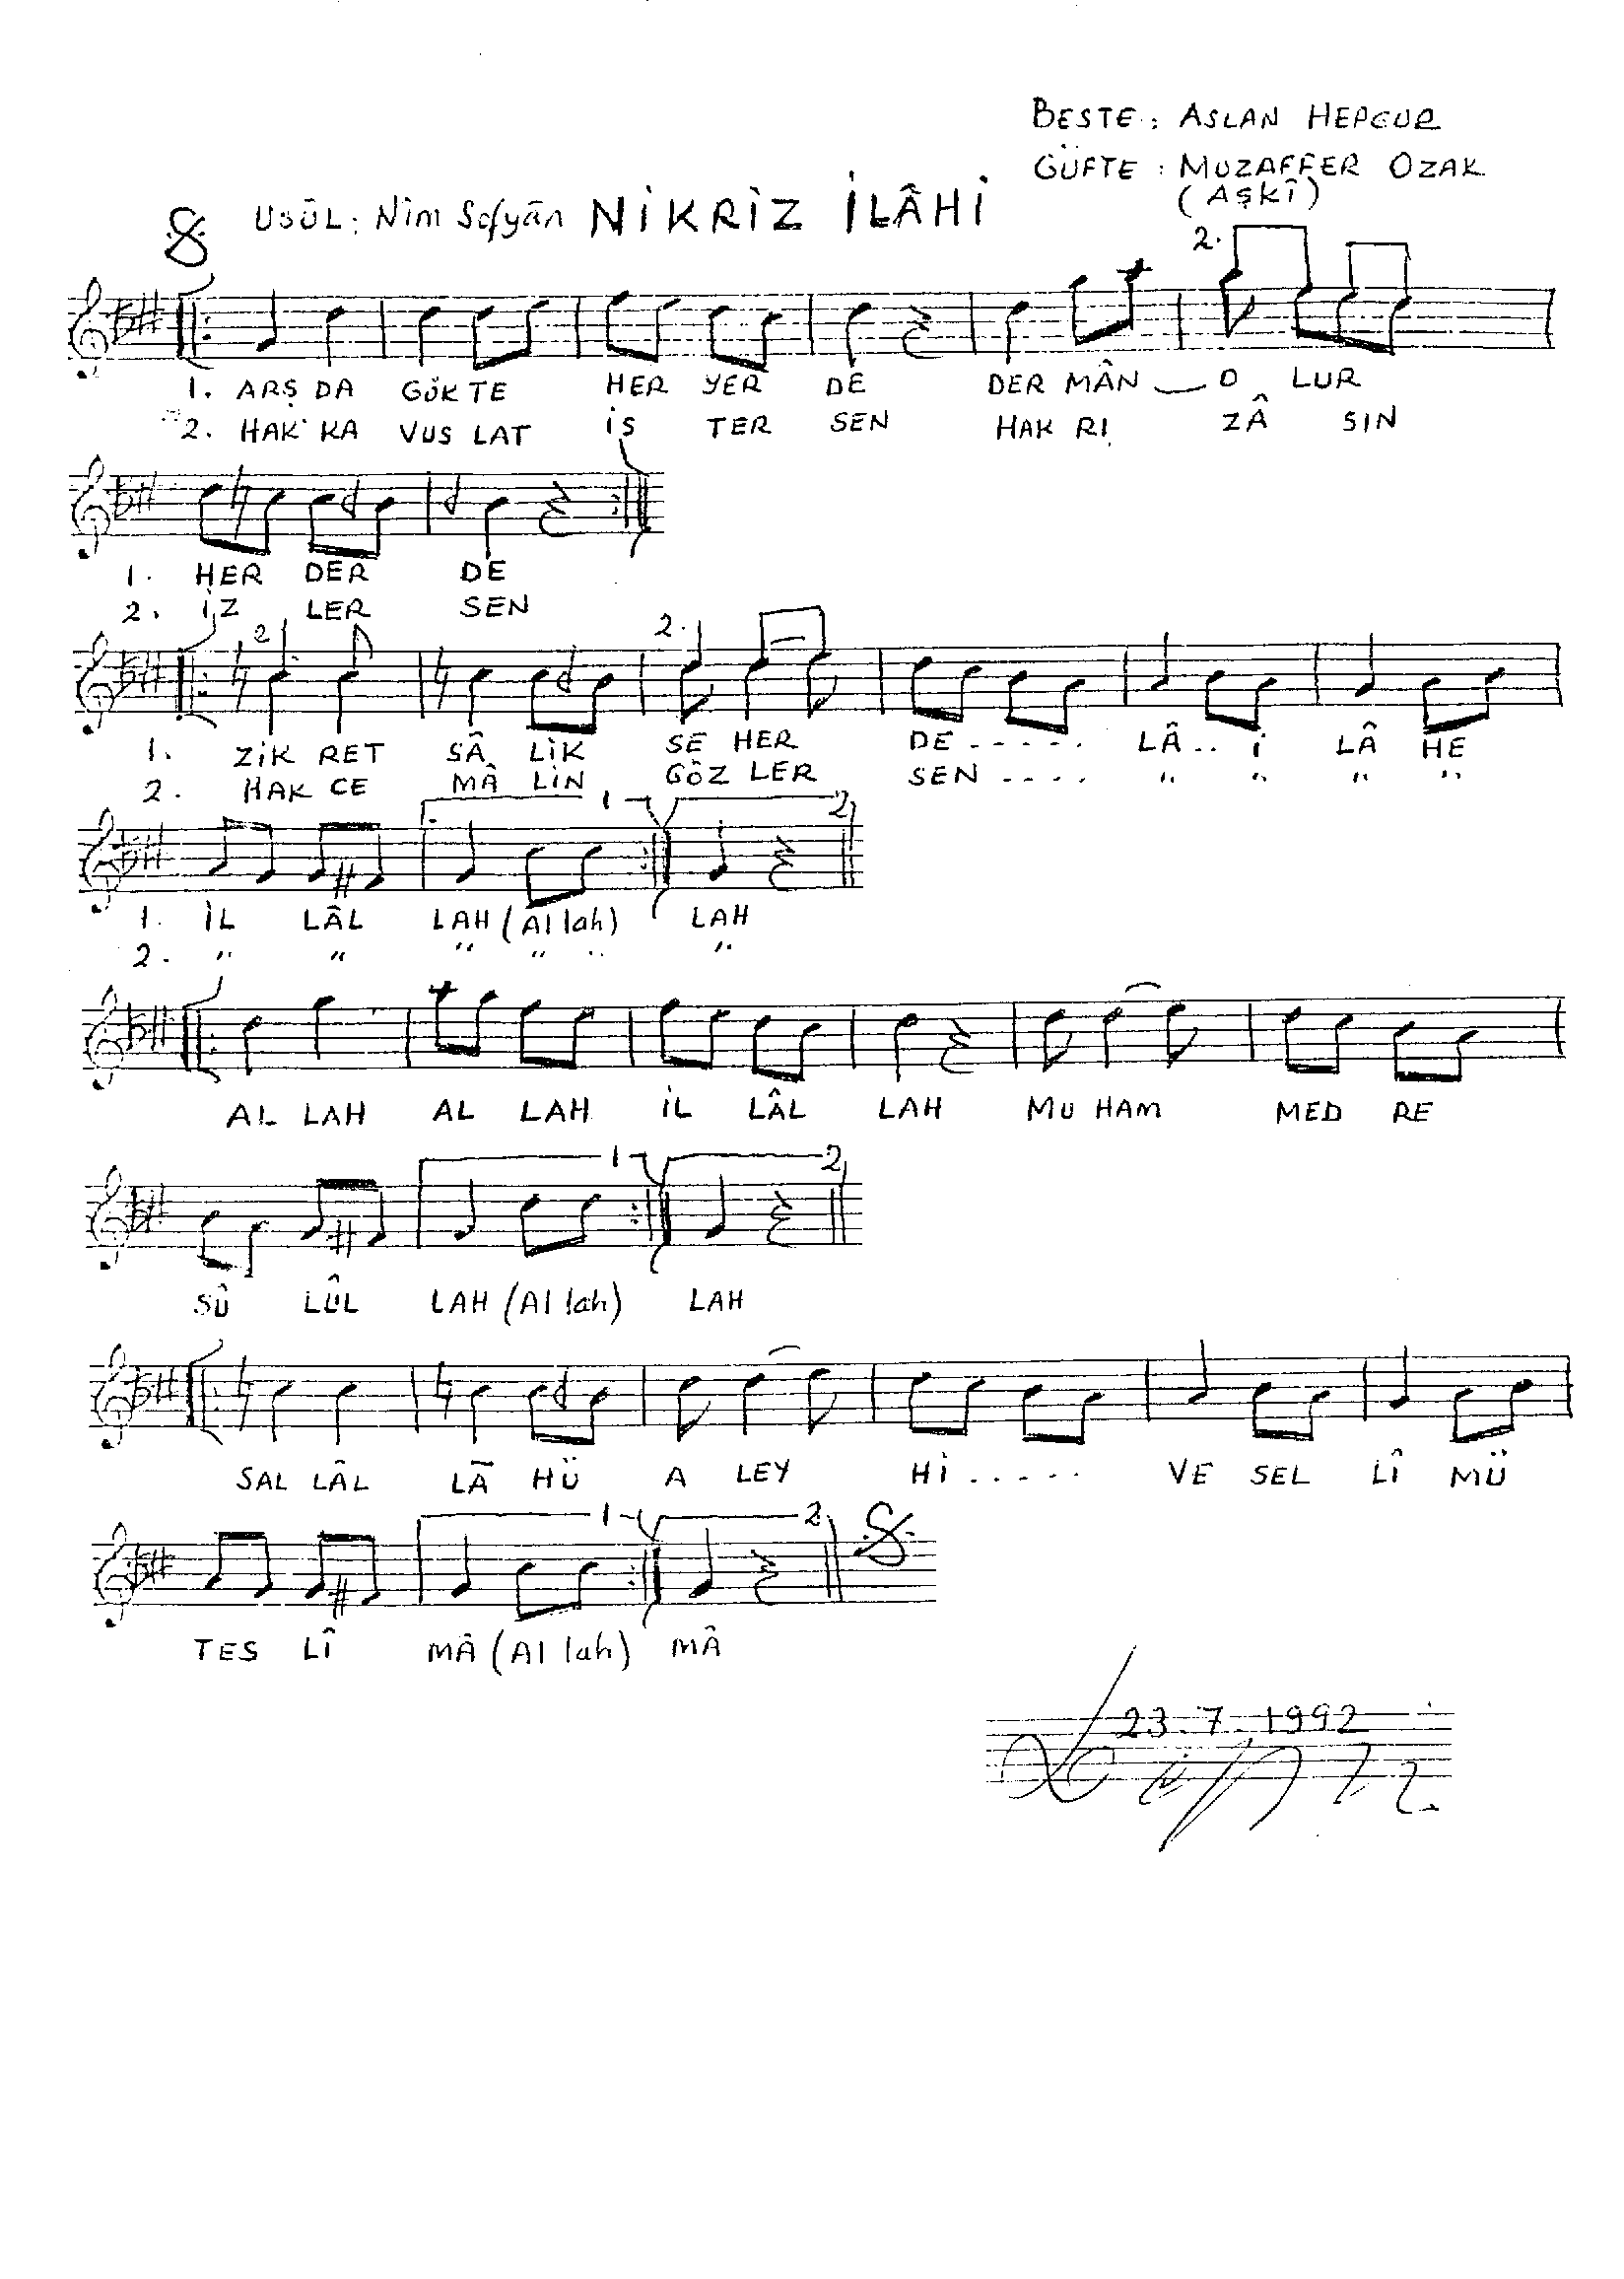 BESTE : ASLAN HEPGUR
GÜFTE : MUZAFFER OZAK
(AŞKÎ)
USÛL : Nim Sofyân NİKRİZ İLÂHİ
2.
1. ARŞ DA GÖK TE HER YER DE DER MÂN O LUR
2. HAK KA VUS LAT İS TER SEN HAK RI ZÂ SIN
1. HER DER DE
2. İZ LER SEN
2 2.
1. ZİK RET SÂ LİK SE HER DE ..... LÂ .. İ LÂ HE
2. HAK CE MÂ LİN GÖZ LER SEN .... " " " "
1 2
1. İL LÂL LAH (Al lah) LAH
2. " " " " " "
AL LAH AL LAH İL LÂL LAH MU HAM MED RE
1 2
SÛ LÛL LAH (Al lah) LAH
SAL LÂL LÂ HÜ A LEY Hİ ..... VE SEL LÎ MÜ
1 2
TES LÎ MÂ (Al lah) MÂ
23.7.1992